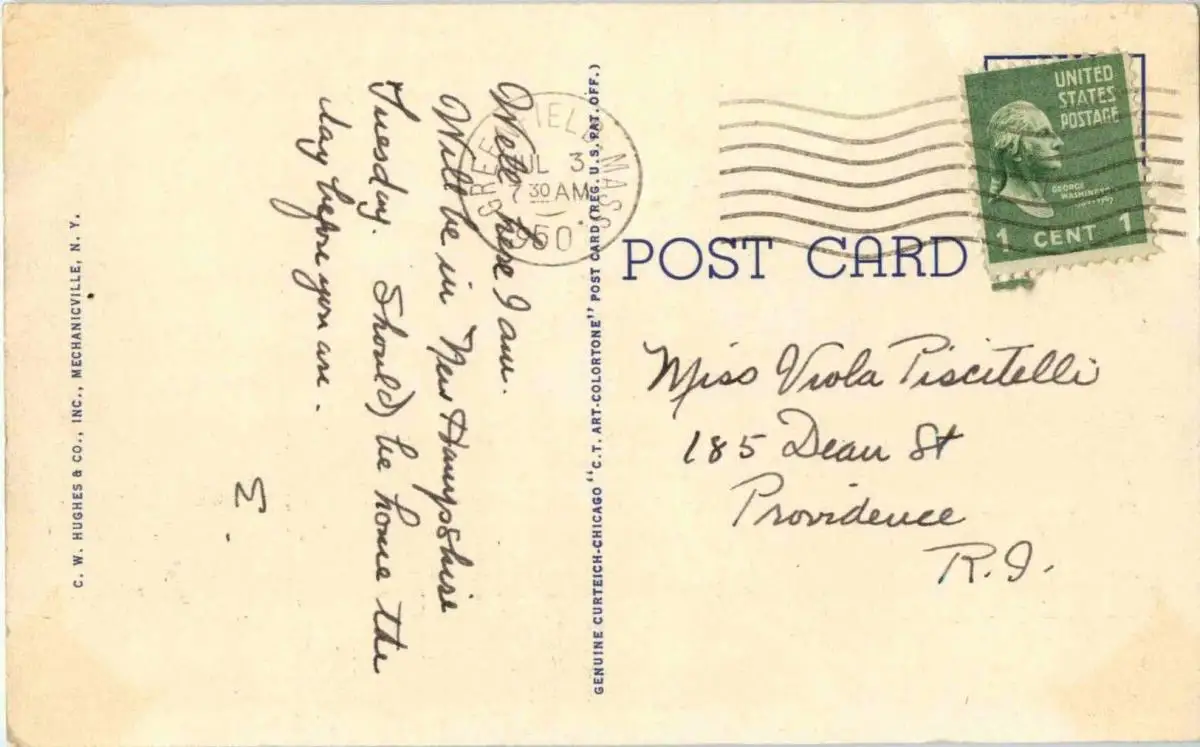 Well here I am.
Will be in New Hampshire
Tuesday. Should be home the
day before you are.
M.
C. W. HUGHES & CO., INC., MECHANICVILLE, N. Y.
GENUINE CURTEICH-CHICAGO "C.T. ART-COLORTONE" POST CARD (REG. U.S. PAT. OFF.)
GREENFIELD MASS.
JUL 3
7 30 AM
1950
UNITED
STATES
POSTAGE
GEORGE
WASHINGTON
1 CENT 1
POST CARD
Miss Viola Piscitelli
185 Dean St
Providence
R.I.